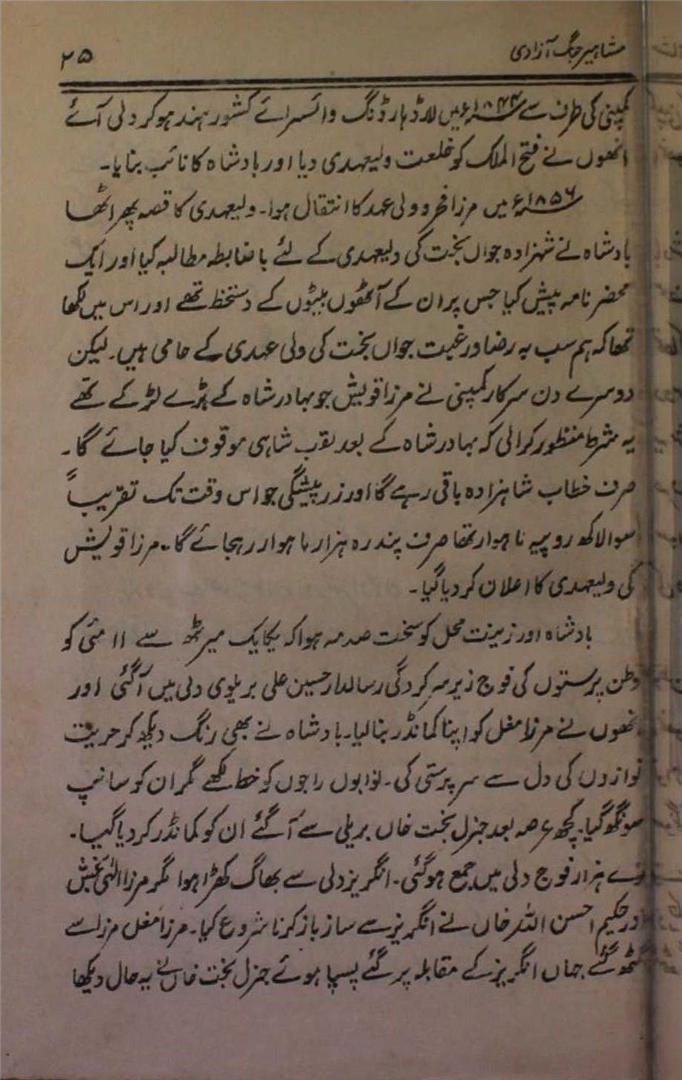 مشاہیر جنگ آزادی
۲۵
کمپنی کی طرف سے ۱۸۴۴ء میں لارڈ ہارڈنگ وائسرائے کشور ہند ہو کر دلی آئے
انھوں نے فتح الملک کو خلعت ولیعہدی دیا اور بادشاہ کا نائب بنایا۔
۱۸۵۶ء میں مرزا فخرو ولی عہد کا انتقال ہوا۔ ولیعہدی کا قصہ پھر اٹھا
بادشاہ نے شہزادہ جواں بخت کی ولیعہدی کے لئے باضابطہ مطالبہ کیا اور ایک
محضر نامہ پیش کیا جس پر ان کے آٹھوں بیٹوں کے دستخط تھے اور اس میں لکھا
تھا کہ ہم سب بہ رضا و رغبت جواں بخت کی ولی عہدی کے حامی ہیں۔ لیکن
دوسرے دن سرکار کمپنی نے مرزا قویش جو بہادر شاہ کے بڑے لڑکے تھے
یہ شرط منظور کرالی کہ بہادر شاہ کے بعد لقب شاہی موقوف کیا جائے گا۔
صرف خطاب شاہزادہ باقی رہے گا اور زر پیشگی جو اس وقت تک تقریباً
سوا لاکھ روپیہ ماہوار تھا صرف پندرہ ہزار ماہوار رہجائے گا۔ مرزا قویش
کی ولیعہدی کا اعلان کر دیا گیا۔
بادشاہ اور زینت محل کو سخت صدمہ ہوا کہ یکایک میرٹھ سے ۱۱ مئی کو
وطن پرستوں کی فوج زیر سرکردگی رسالدار حسین علی بریلوی دلی میں آگئی اور
انھوں نے مرزا مغل کو اپنا کمانڈر بنالیا۔ بادشاہ نے بھی رنگ دیکھ کر حریت
نوازوں کی دل سے سرپرستی کی۔ نوابوں راجوں کو خط لکھے مگر ان کو سانپ
سونگھ گیا۔ کچھ عرصہ بعد جنرل بخت خاں بریلی سے آگئے ان کو کمانڈر کر دیا گیا۔
نوے ہزار فوج دلی میں جمع ہو گئی۔ انگریز دلی سے بھاگ کھڑا ہوا مگر مرزا الٰہی بخش
اور حکیم احسن اللہ خاں نے انگریز سے ساز باز کرنا شروع کیا۔ مرزا مغل مرزا سے
گٹھ گئے جہاں انگریز کے مقابلہ پر گئے پسپا ہوئے جنرل بخت خاں نے یہ حال دیکھا